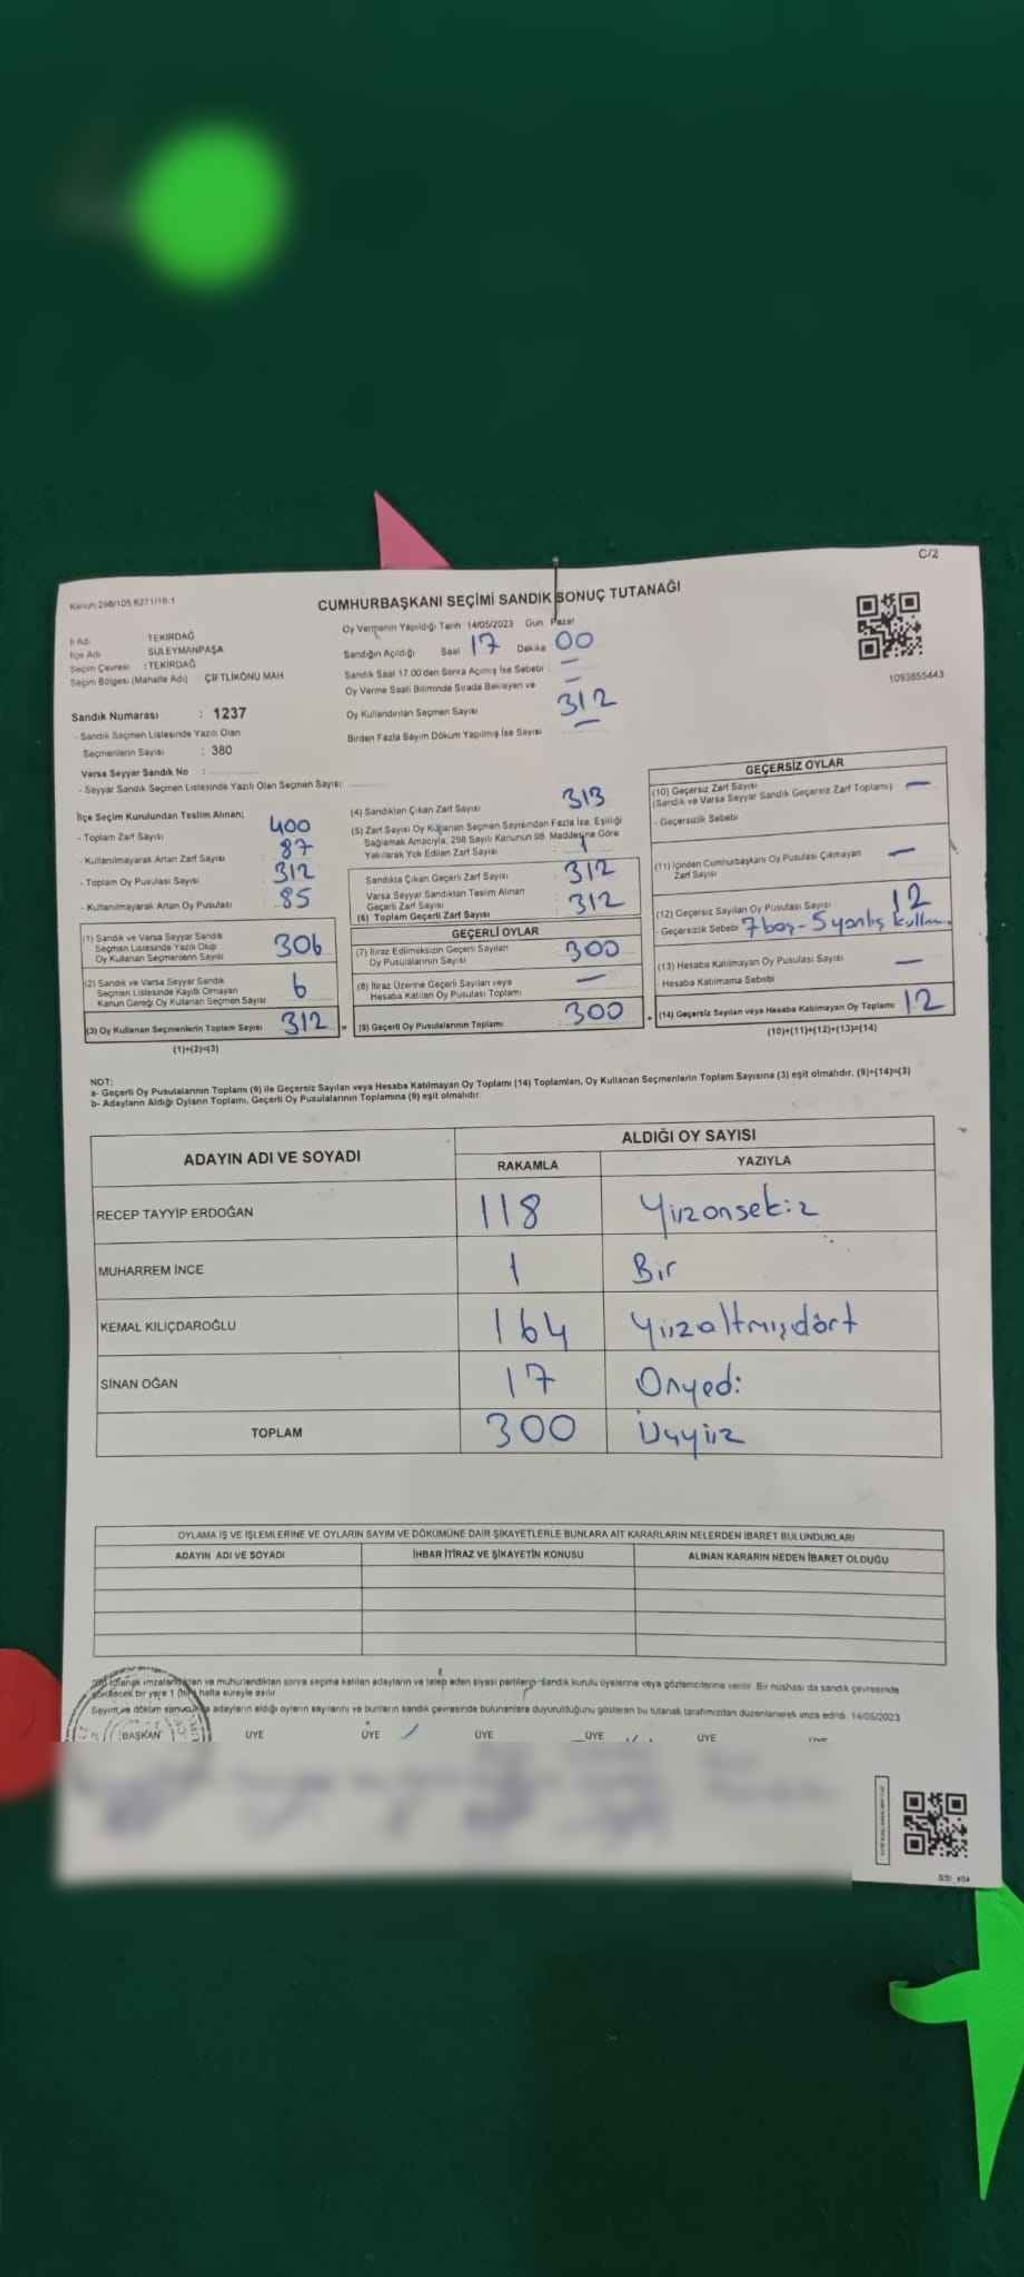 C/2
Kanun: 298/105 6271/16-1
CUMHURBAŞKANI SEÇİMİ SANDIK SONUÇ TUTANAĞI
İl Adı : TEKİRDAĞ
İlçe Adı : SÜLEYMANPAŞA
Seçim Çevresi : TEKİRDAĞ
Seçim Bölgesi (Mahalle Adı) : ÇİFTLİKÖNÜ MAH
Sandık Numarası : 1237
- Sandık Seçmen Listesinde Yazılı Olan
Seçmenlerin Sayısı : 380
Varsa Seyyar Sandık No :
- Seyyar Sandık Seçmen Listesinde Yazılı Olan Seçmen Sayısı:
Oy Vermenin Yapıldığı Tarih 14/05/2023 Gün Pazar
Sandığın Açıldığı Saat 17 Dakika 00
Sandık Saat 17.00'den Sonra Açılmış İse Sebebi —
Oy Verme Saati Bitiminde Sırada Bekleyen ve —
Oy Kullandırılan Seçmen Sayısı 312
Birden Fazla Sayım Döküm Yapılmış İse Sayısı —
1093855443
İlçe Seçim Kurulundan Teslim Alınan;
- Toplam Zarf Sayısı 400
- Kullanılmayarak Artan Zarf Sayısı 87
- Toplam Oy Pusulası Sayısı 312
- Kullanılmayarak Artan Oy Pusulası 85
(1) Sandık ve Varsa Seyyar Sandık
Seçmen Listesinde Yazılı Olup
Oy Kullanan Seçmenlerin Sayısı 306
(2) Sandık ve Varsa Seyyar Sandık
Seçmen Listesinde Kayıtlı Olmayan
Kanun Gereği Oy Kullanan Seçmen Sayısı 6
(3) Oy Kullanan Seçmenlerin Toplam Sayısı 312 =
(1)+(2)=(3)
(4) Sandıktan Çıkan Zarf Sayısı 313
(5) Zarf Sayısı Oy Kullanan Seçmen Sayısından Fazla İse, Eşitliği
Sağlamak Amacıyla, 298 Sayılı Kanunun 98. Maddesine Göre
Yakılarak Yok Edilen Zarf Sayısı 1
Sandıkta Çıkan Geçerli Zarf Sayısı 312
Varsa Seyyar Sandıktan Teslim Alınan
Geçerli Zarf Sayısı
(6) Toplam Geçerli Zarf Sayısı 312
GEÇERLİ OYLAR
(7) İtiraz Edilmeksizin Geçerli Sayılan
Oy Pusulalarının Sayısı 300
(8) İtiraz Üzerine Geçerli Sayılan veya
Hesaba Katılan Oy Pusulası Toplamı —
(9) Geçerli Oy Pusulalarının Toplamı 300 +
GEÇERSİZ OYLAR
(10) Geçersiz Zarf Sayısı —
(Sandık ve Varsa Seyyar Sandık Geçersiz Zarf Toplamı)
- Geçersizlik Sebebi
(11) İçinden Cumhurbaşkanı Oy Pusulası Çıkmayan
Zarf Sayısı —
(12) Geçersiz Sayılan Oy Pusulası Sayısı 12
- Geçersizlik Sebebi 7 boş - 5 yanlış kullan.
(13) Hesaba Katılmayan Oy Pusulası Sayısı —
Hesaba Katılmama Sebebi
(14) Geçersiz Sayılan veya Hesaba Katılmayan Oy Toplamı 12
(10)+(11)+(12)+(13)=(14)
NOT:
a- Geçerli Oy Pusulalarının Toplamı (9) ile Geçersiz Sayılan veya Hesaba Katılmayan Oy Toplamı (14) Toplamları, Oy Kullanan Seçmenlerin Toplam Sayısına (3) eşit olmalıdır. (9)+(14)=(3)
b- Adayların Aldığı Oyların Toplamı, Geçerli Oy Pusulalarının Toplamına (9) eşit olmalıdır.
ADAYIN ADI VE SOYADI ALDIĞI OY SAYISI
RAKAMLA YAZIYLA
RECEP TAYYİP ERDOĞAN 118 Yüzonsekiz
MUHARREM İNCE 1 Bir
KEMAL KILIÇDAROĞLU 164 Yüzaltmışdört
SİNAN OĞAN 17 Onyedi
TOPLAM 300 Üçyüz
OYLAMA İŞ VE İŞLEMLERİNE VE OYLARIN SAYIM VE DÖKÜMÜNE DAİR ŞİKAYETLERLE BUNLARA AİT KARARLARIN NELERDEN İBARET BULUNDUKLARI
ADAYIN ADI VE SOYADI İHBAR İTİRAZ VE ŞİKAYETİN KONUSU ALINAN KARARIN NEDEN İBARET OLDUĞU
ve mühürlendikten sonra seçime katılan adayların ve talep eden siyasi partilerin Sandık kurulu üyelerine veya gözlemcilerine verilir. Bir nüshası da sandık çevresinde
görülecek bir yere 1 hafta süreyle asılır.
Sayım ve döküm adayların aldığı oyların sayılarını ve bunların sandık çevresinde bulunanlara duyurulduğunu gösteren bu tutanak tarafımızdan düzenlenerek imza edildi. 14/05/2023
BAŞKAN ÜYE ÜYE ÜYE ÜYE ÜYE